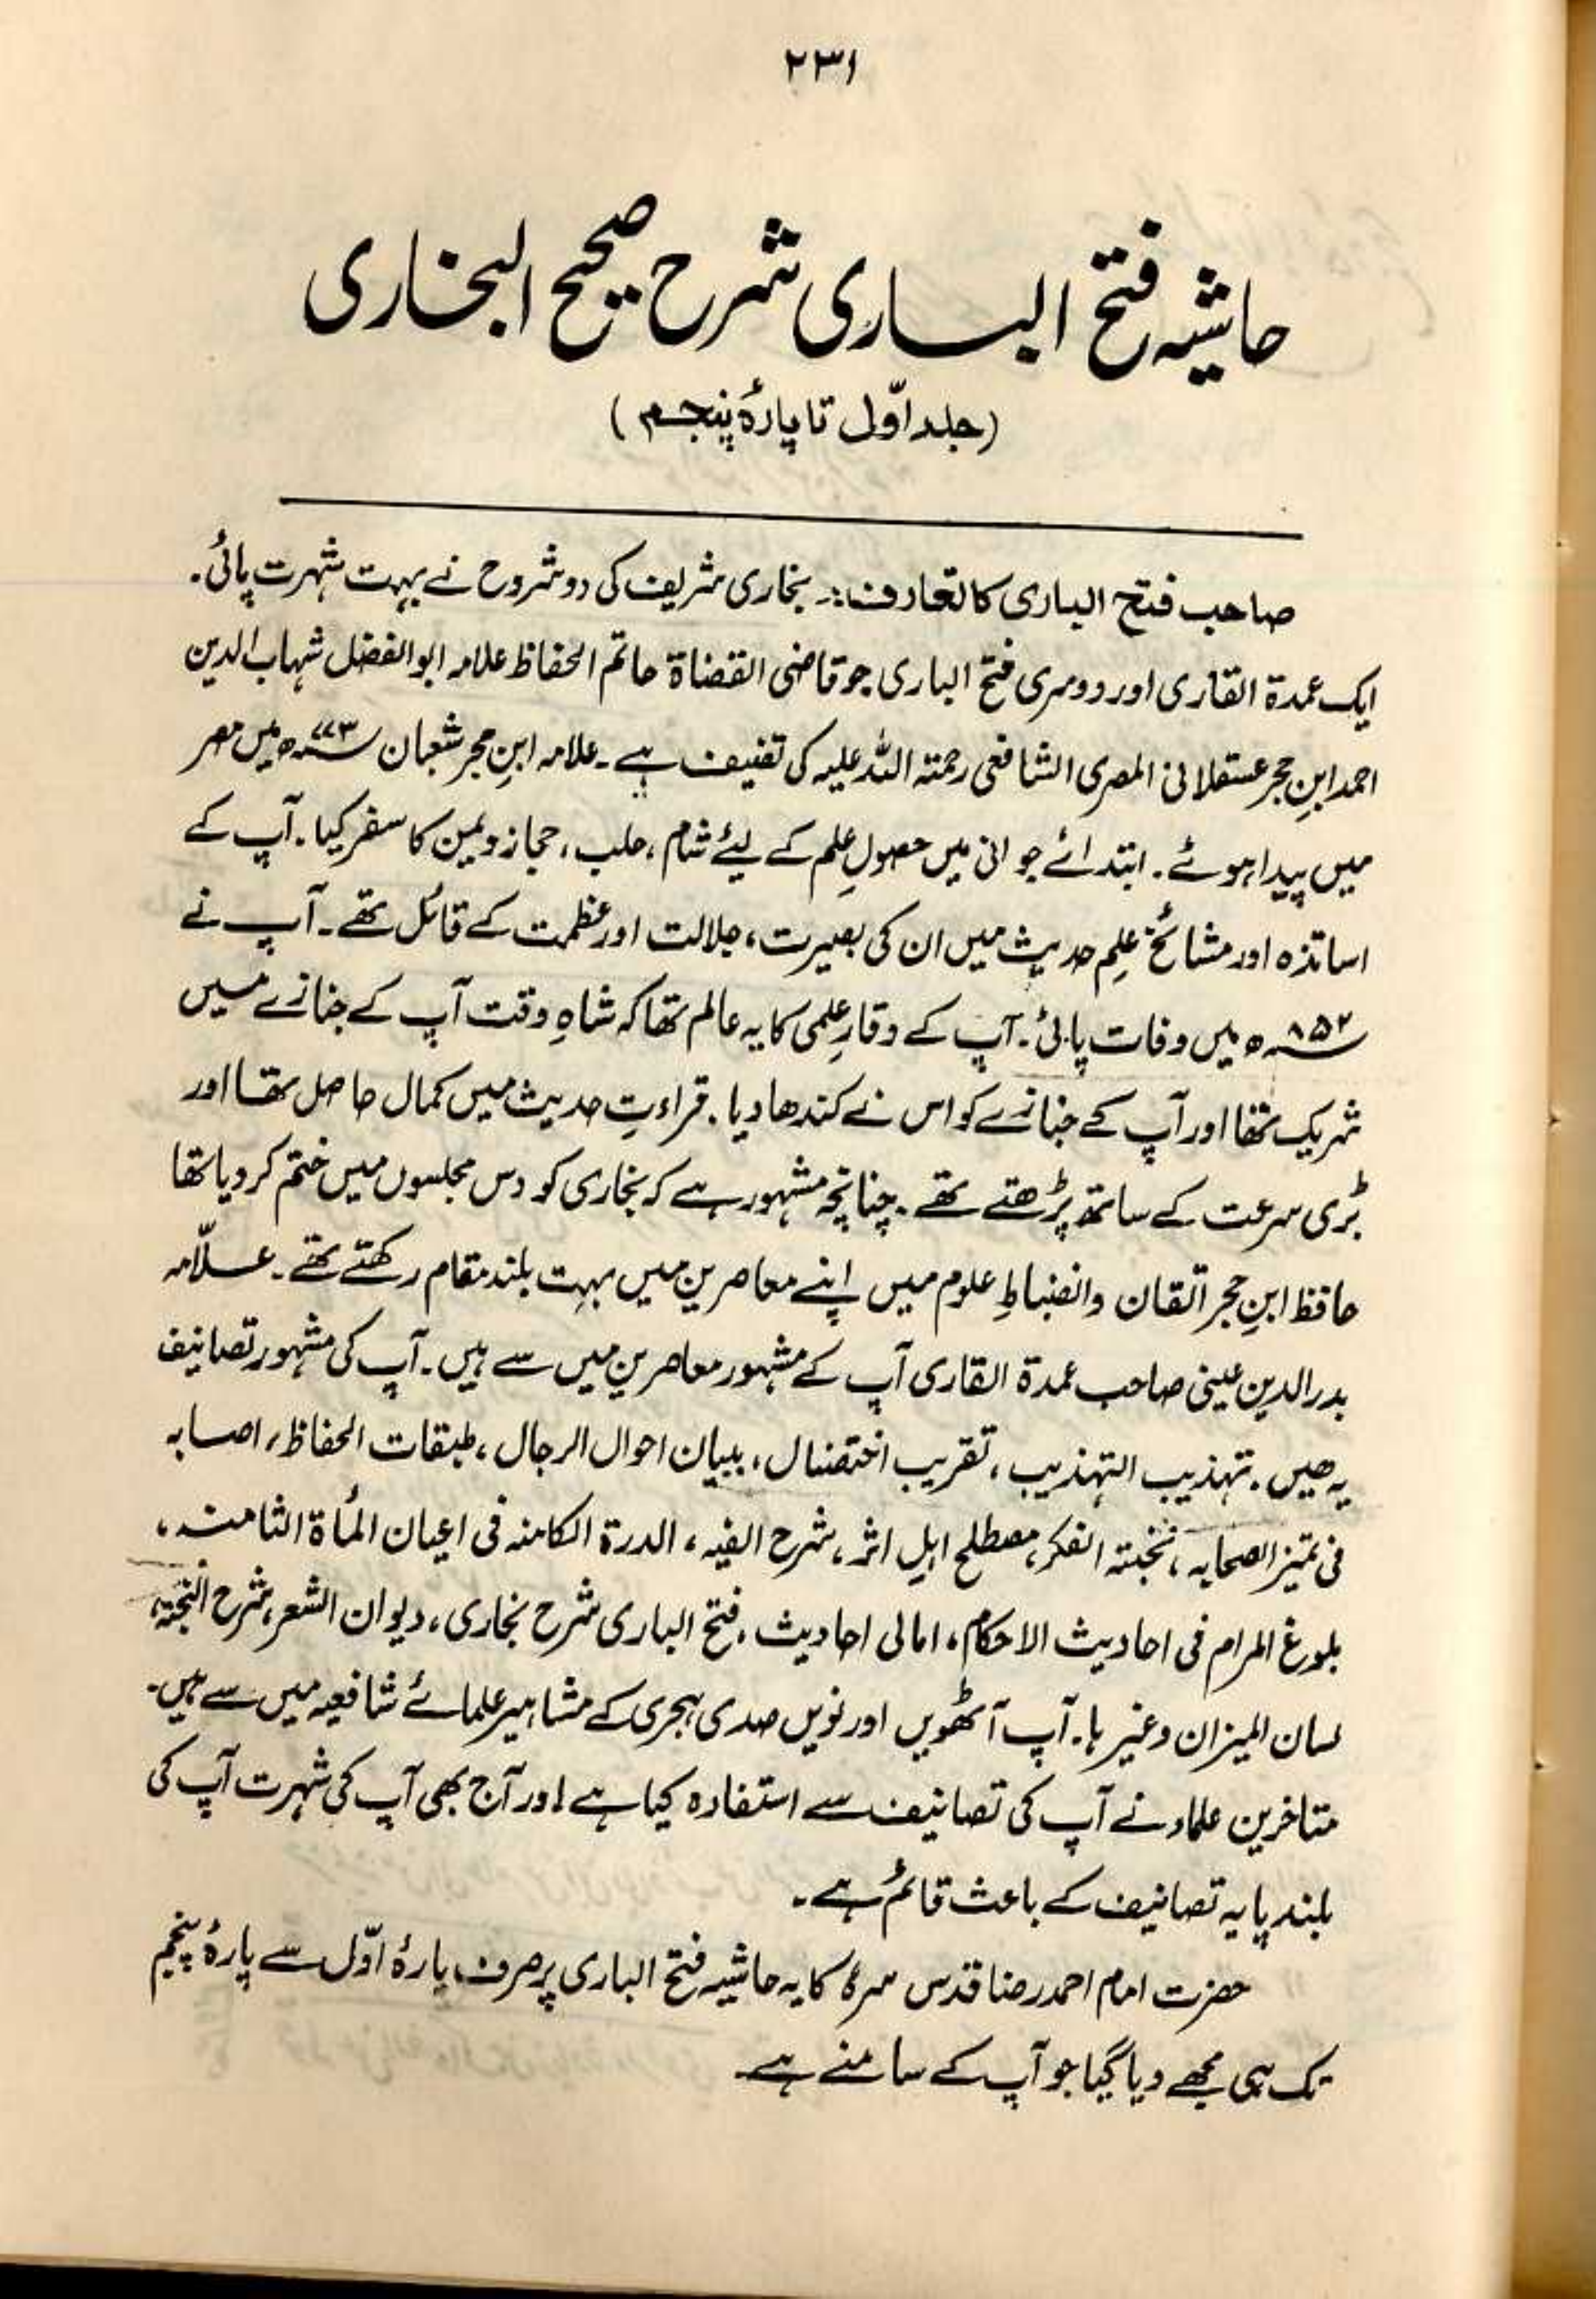 ۲۳۱
حاشیہ فتح الباری شرح صحیح البخاری
(جلد اوّل تا پارۂ پنجم)
صاحب فتح الباری کا تعارف:۔ بخاری شریف کی دو شروح نے بہت شہرت پائی۔
ایک عمدۃ القاری اور دوسری فتح الباری جو قاضی القضاۃ خاتم الحفاظ علامہ ابو الفضل شہاب الدین
احمد ابنِ حجر عسقلانی المصری الشافعی رحمتہ اللہ علیہ کی تصنیف ہے۔ علامہ ابنِ حجر شعبان ۷۷۳ھ میں مصر
میں پیدا ہوئے۔ ابتدائے جوانی میں حصولِ علم کے لیئے شام، حلب، حجاز و یمن کا سفر کیا۔ آپ کے
اساتذہ اور مشائخ علِم حدیث میں ان کی بصیرت، جلالت اور عظمت کے قائل تھے۔ آپ نے
۸۵۲ھ میں وفات پائی۔ آپ کے وقارِ علمی کا یہ عالم تھا کہ شاہِ وقت آپ کے جنازے میں
شریک تھا اور آپ کے جنازے کو اس نے کندھا دیا۔ قراءتِ حدیث میں کمال حاصل تھا اور
بڑی سرعت کے ساتھ پڑھتے تھے۔ چنانچہ مشہور ہے کہ بخاری کو دس مجلسوں میں ختم کر دیا تھا
حافظ ابنِ حجر اتقان وانضباطِ علوم میں اپنے معاصرین میں بہت بلند مقام رکھتے تھے۔ علاّمہ
بدر الدین عینی صاحب عمدۃ القاری آپ کے مشہور معاصرین میں سے ہیں۔ آپ کی مشہور تصانیف
یہ ھیں۔ تہذیب التہذیب، تقریب اختضال، ببیان احوال الرجال، طبقات الحفاظ، اصابہ
فی تمیز الصحابہ، نخبتہ الفکر، مصطلح اہلِ اثر، شرح الفیہ، الدرۃ الکامنہ فی اعیان المأۃ الثامنہ،
بلوغ المرام فی احادیث الاحکام، امالی احادیث، فتح الباری شرح بخاری، دیوان الشعر، شرح النخبۃ،
لسان المیزان وغیرہا۔ آپ آٹھویں اور نویں صدی ہجری کے مشاہیر علمائے شافعیہ میں سے ہیں۔
متاخرین علماء نے آپ کی تصانیف سے استفادہ کیا ہے اور آج بھی آپ کی شہرت آپ کی
بلند پایہ تصانیف کے باعث قائم ہے۔
حضرت امام احمد رضا قدس سرہٗ کا یہ حاشیہ فتح الباری پر صرف پارۂ اوّل سے پارۂ پنجم
تک ہی مجھے دیا گیا جو آپ کے سامنے ہے۔